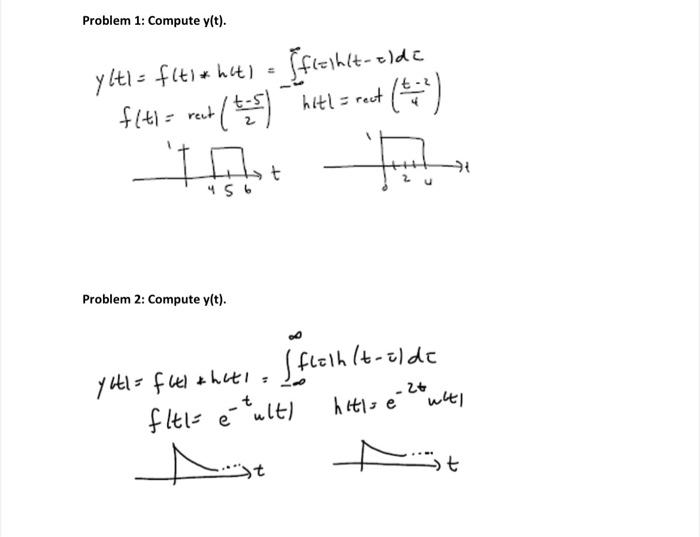 Problem 1: Compute y(t).
y(t) = f(t) * h(t) = ∫_{-∞}^{∞} f(τ)h(t-τ)dτ
f(t) = rect((t-5)/2) h(t) = rect((t-2)/4)
1 1
4 5 6 t 0 2 4 t
Problem 2: Compute y(t).
y(t) = f(t) * h(t) = ∫_{-∞}^{∞} f(τ)h(t-τ)dτ
f(t) = e^{-t}u(t) h(t) = e^{-2t}u(t)
t t